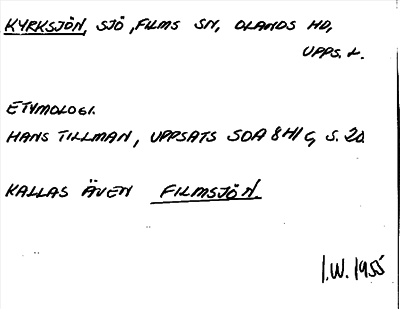 KYRKSJÖN, SJÖ, FILMS SN, OLANDS HD,
UPPS. L.
ETYMOLOGI.
HANS TILLMAN, UPPSATS SOA 8H1 S. 20
KALLAS ÄVEN FILMSJÖN.
I.W. 1955